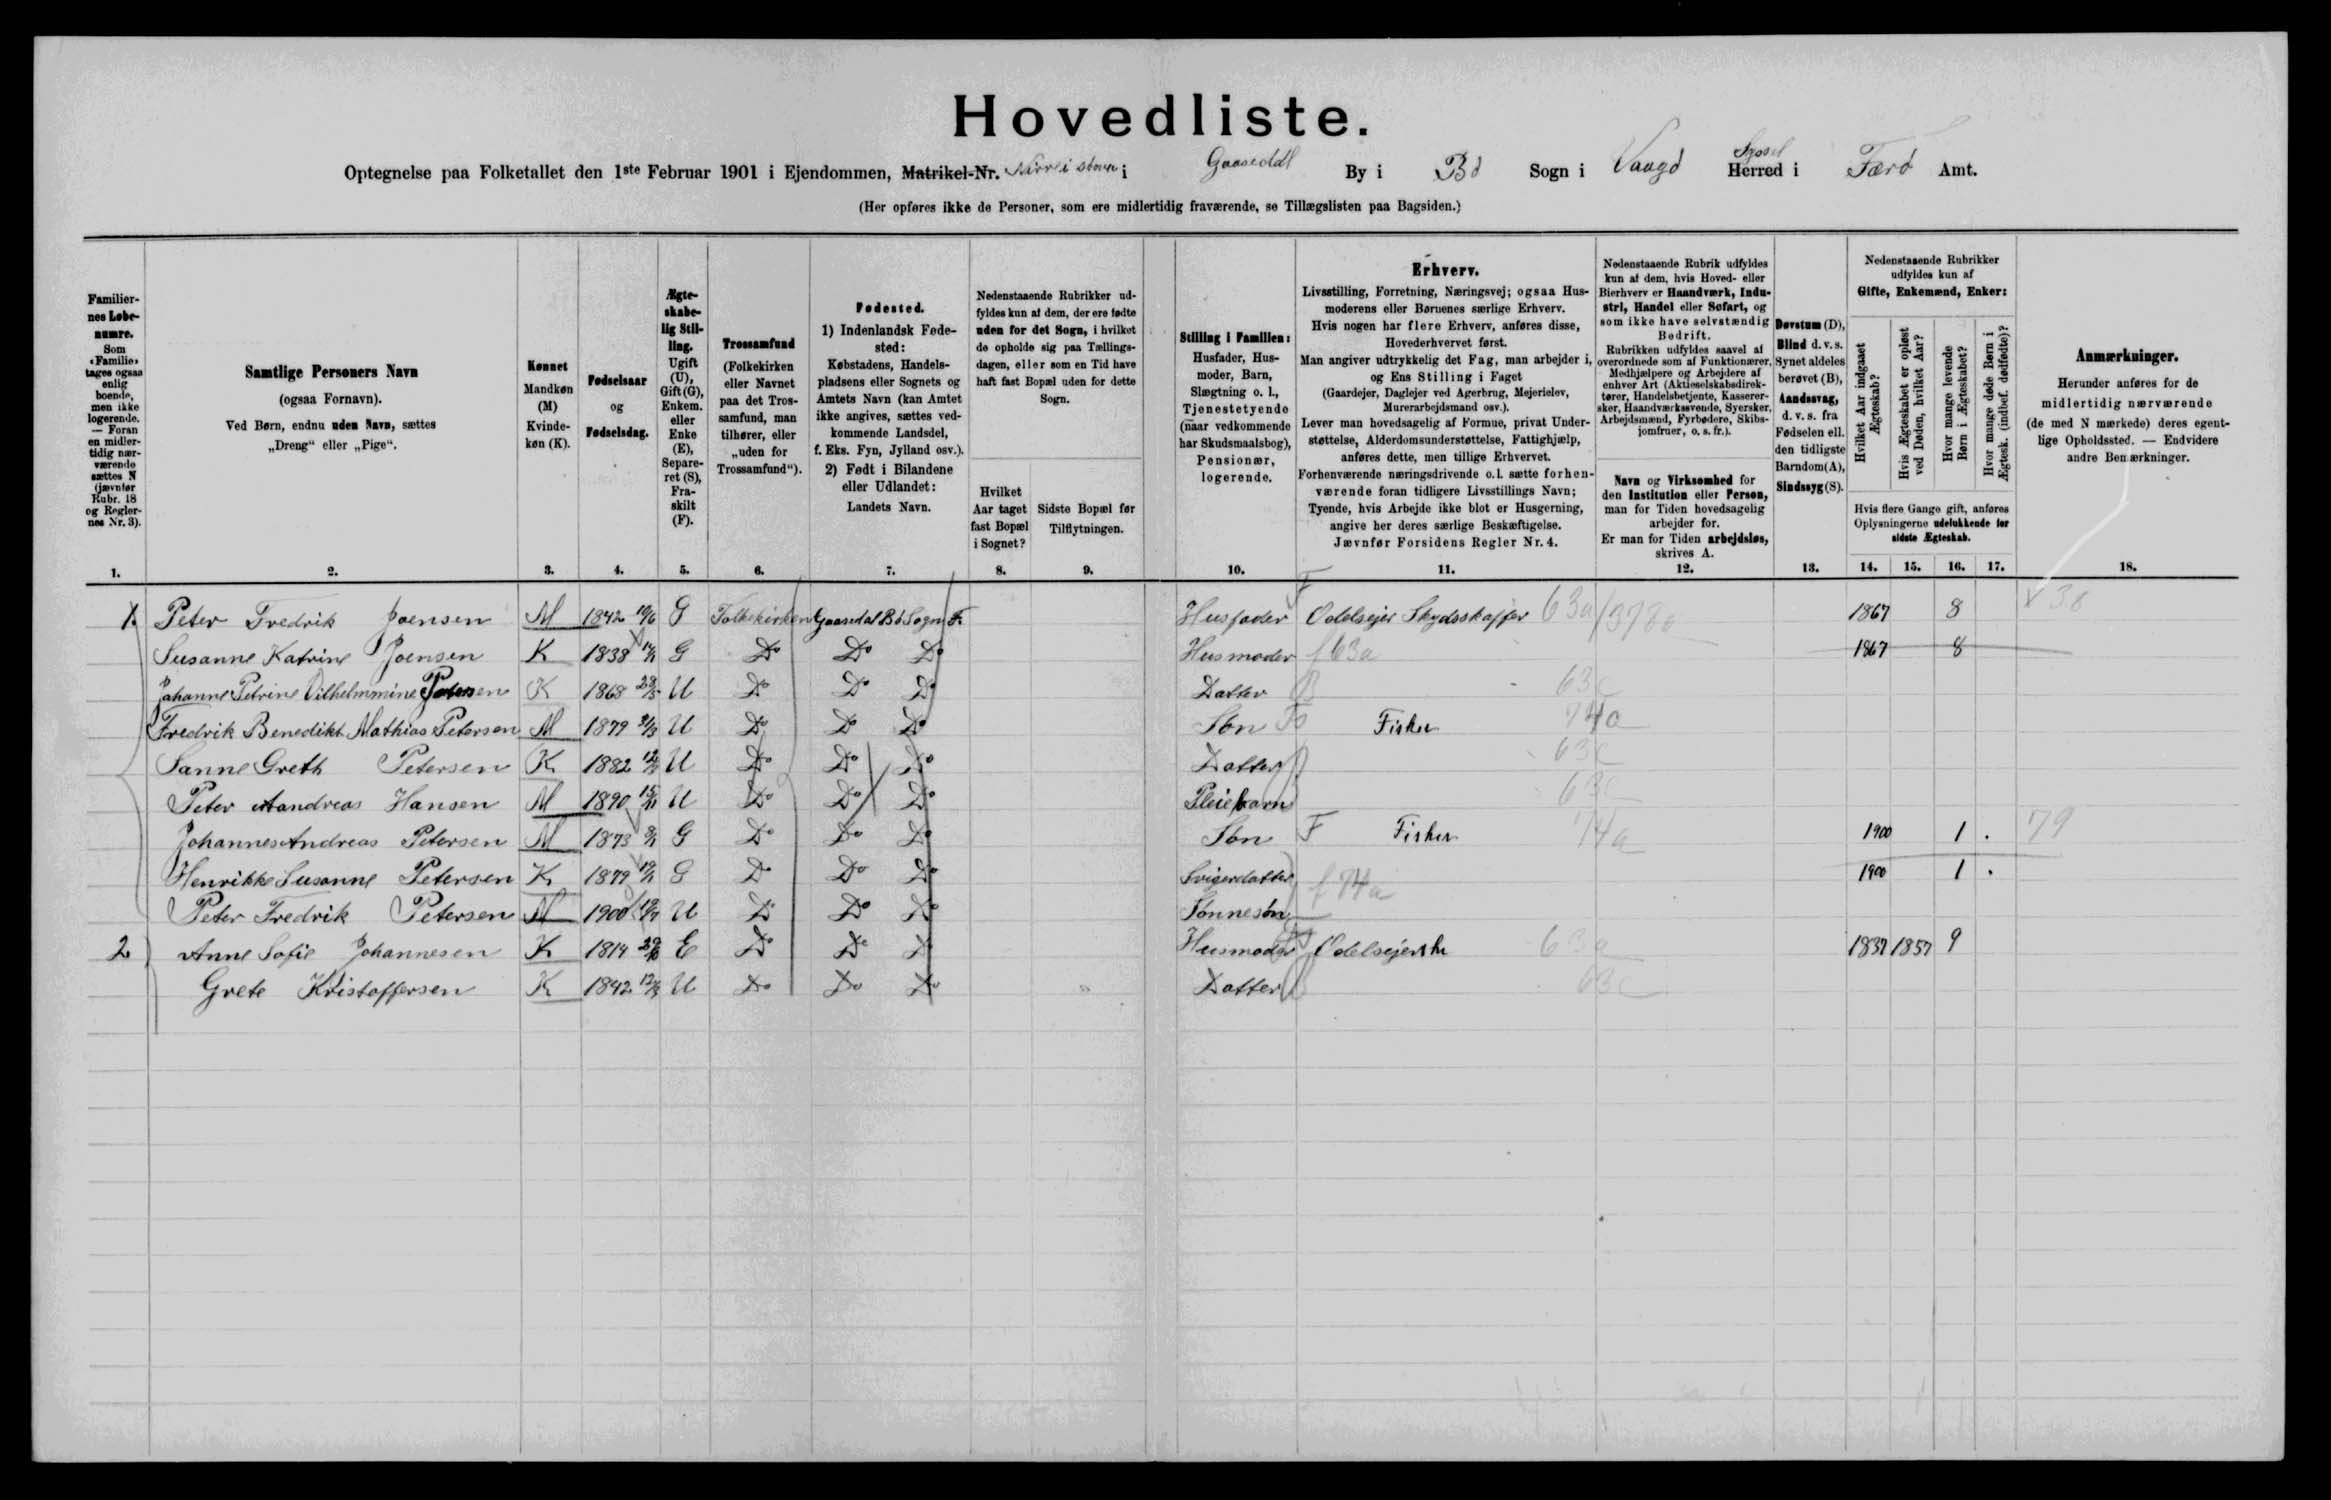 Hovedliste.
Optegnelse paa Folketallet den 1ste Februar 1901 i Ejendommen, Matrikel-Nr. Nirve i stoven i Gaasedal By i Bø Sogn i Vaagø Herred Syssel i Færø Amt.
(Her opføres ikke de Personer, som ere midlertidig fraværende, se Tillægslisten paa Bagsiden.)
Familiernes Løbenumre. Som «Familie» tages ogsaa enlig boende, men ikke logerende. — Foran en midlertidig nærværende sættes N (jævnfør Rubr. 18 og Reglernes Nr. 3).
Samtlige Personers Navn (ogsaa Fornavn). Ved Børn, endnu uden Navn, sættes „Dreng“ eller „Pige“.
Kønnet Mandkøn (M) Kvindekøn (K).
Fødselsaar og Fødselsdag.
Ægteskabelig Stilling. Ugift (U), Gift (G), Enkem. eller Enke (E), Separeret (S), Fraskilt (F).
Trossamfund (Folkekirken eller Navnet paa det Trossamfund, man tilhører, eller „uden for Trossamfund“).
Fødested. 1) Indenlandsk Fødested: Købstadens, Handelspladsens eller Sognets og Amtets Navn (kan Amtet ikke angives, sættes vedkommende Landsdel, f. Eks. Fyn, Jylland osv.). 2) Født i Bilandene eller Udlandet: Landets Navn.
Nedenstaaende Rubrikker udfyldes kun af dem, der ere fødte uden for det Sogn, i hvilket de opholde sig paa Tællingsdagen, eller som en Tid have haft fast Bopæl uden for dette Sogn.
Hvilket Aar taget fast Bopæl i Sognet?
Sidste Bopæl før Tilflytningen.
Stilling i Familien: Husfader, Husmoder, Barn, Slægtning o. l., Tjenestetyende (naar vedkommende har Skudsmaalsbog), Pensionær, logerende.
Erhverv.
Livsstilling, Forretning, Næringsvej; ogsaa Husmoderens eller Børnenes særlige Erhverv.
Hvis nogen har flere Erhverv, anføres disse, Hovederhvervet først.
Man angiver udtrykkelig det Fag, man arbejder i, og Ens Stilling i Faget
(Gaardejer, Daglejer ved Agerbrug, Mejerielev, Murerarbejdsmand osv.).
Lever man hovedsagelig af Formue, privat Understøttelse, Alderdomsunderstøttelse, Fattighjælp, anføres dette, men tillige Erhvervet.
Forhenværende næringsdrivende o.l. sætte forhenværende foran tidligere Livsstillings Navn;
Tyende, hvis Arbejde ikke blot er Husgerning, angive her deres særlige Beskæftigelse.
Jævnfør Forsidens Regler Nr. 4.
Nedenstaaende Rubrik udfyldes kun af dem, hvis Hoved- eller Bierhverv er Haandværk, Industri, Handel eller Søfart, og som ikke have selvstændig Bedrift.
Rubrikken udfyldes saavel af overordnede som af Funktionærer, Medhjælpere og Arbejdere af enhver Art (Aktieselskabsdirektører, Handelsbetjente, Kasserersker, Haandværkssvende, Syersker, Arbejdsmænd, Fyrbødere, Skibsjomfruer, o. s. fr.).
Navn og Virksomhed for den Institution eller Person, man for Tiden hovedsagelig arbejder for.
Er man for Tiden arbejdsløs, skrives A.
Døvstum (D), Blind d. v. s. Synet aldeles berøvet (B), Aandssvag, d. v. s. fra Fødselen ell. den tidligste Barndom (A), Sindssyg (S).
Nedenstaaende Rubrikker udfyldes kun af Gifte, Enkemænd, Enker:
Hvilket Aar indgaaet Ægteskab?
Hvis Ægteskabet er opløst ved Døden, hvilket Aar?
Hvor mange levende Børn i Ægteskabet?
Hvor mange døde Børn i Ægtesk. (indbef. dødfødte)?
Hvis flere Gange gift, anføres Oplysningerne udelukkende for sidste Ægteskab.
Anmærkninger.
Herunder anføres for de midlertidig nærværende (de med N mærkede) deres egentlige Opholdssted. — Endvidere andre Bemærkninger.
1. 2. 3. 4. 5. 6. 7. 8. 9. 10. 11. 12. 13. 14. 15. 16. 17. 18.
1. Peter Fredrik Joensen M 1842 10/6 G Folkekirken Gaasedal Bø Sogn F. Husfader F Odelsejer Skydsskaffer 63a 1867 8 38
Susanne Katrine Joensen K 1838 G Do Do Do Husmoder f 63a 1867 8
Johanne Petrine Vilhelmmine Petersen K 1868 U Do Do Do Datter 63c
Fredrik Benedikt Mathias Petersen M 1879 U Do Do Do Søn Fisker 74a
Sanne Greth Petersen K 1882 U Do Do Do Datter 63c
Peter Aandreas Hansen M 1890 U Do Do Do Pleiebarn 63c
Johannes Andreas Petersen M 1873 G Do Do Do Søn F Fisker 74a 1900 1 . 79
Henrikke Susanne Petersen K 1879 G Do Do Do Svigerdatter f 74a 1900 1 .
Peter Fredrik Petersen M 1900 U Do Do Do Sønnesøn
2 Anne Sofie Johannesen K 1814 E Do Do Do Husmoder Odelsejerske 63a 1837 1857 9
Grete Kristoffersen K 1842 U Do Do Do Datter 63c